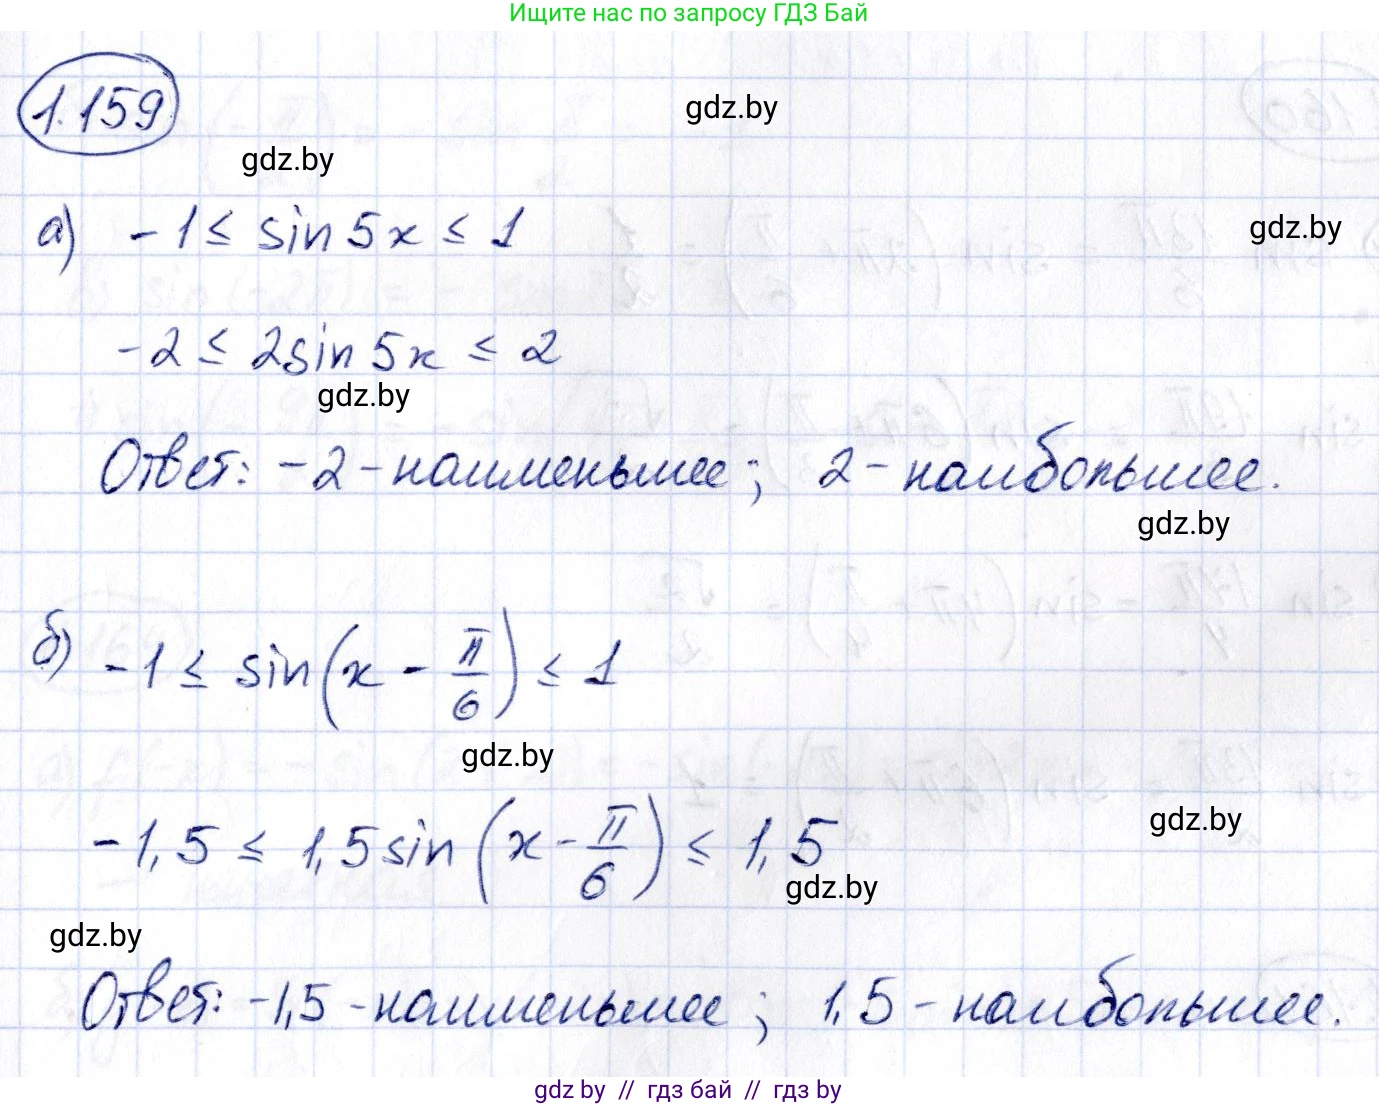 Ищите нас по запросу ГДЗ Бай
1.159
gdz.by
gdz.by
а) -1 ≤ sin 5x ≤ 1
gdz.by
-2 ≤ 2sin 5x ≤ 2
gdz.by
Ответ: -2 - наименьшее; 2 - наибольшее.
gdz.by
б) -1 ≤ sin(x - π/6) ≤ 1
gdz.by
-1,5 ≤ 1,5 sin(x - π/6) ≤ 1,5
gdz.by
gdz.by
gdz.by
Ответ: -1,5 - наименьшее; 1,5 - наибольшее.
gdz by // гдз бай // гдз by